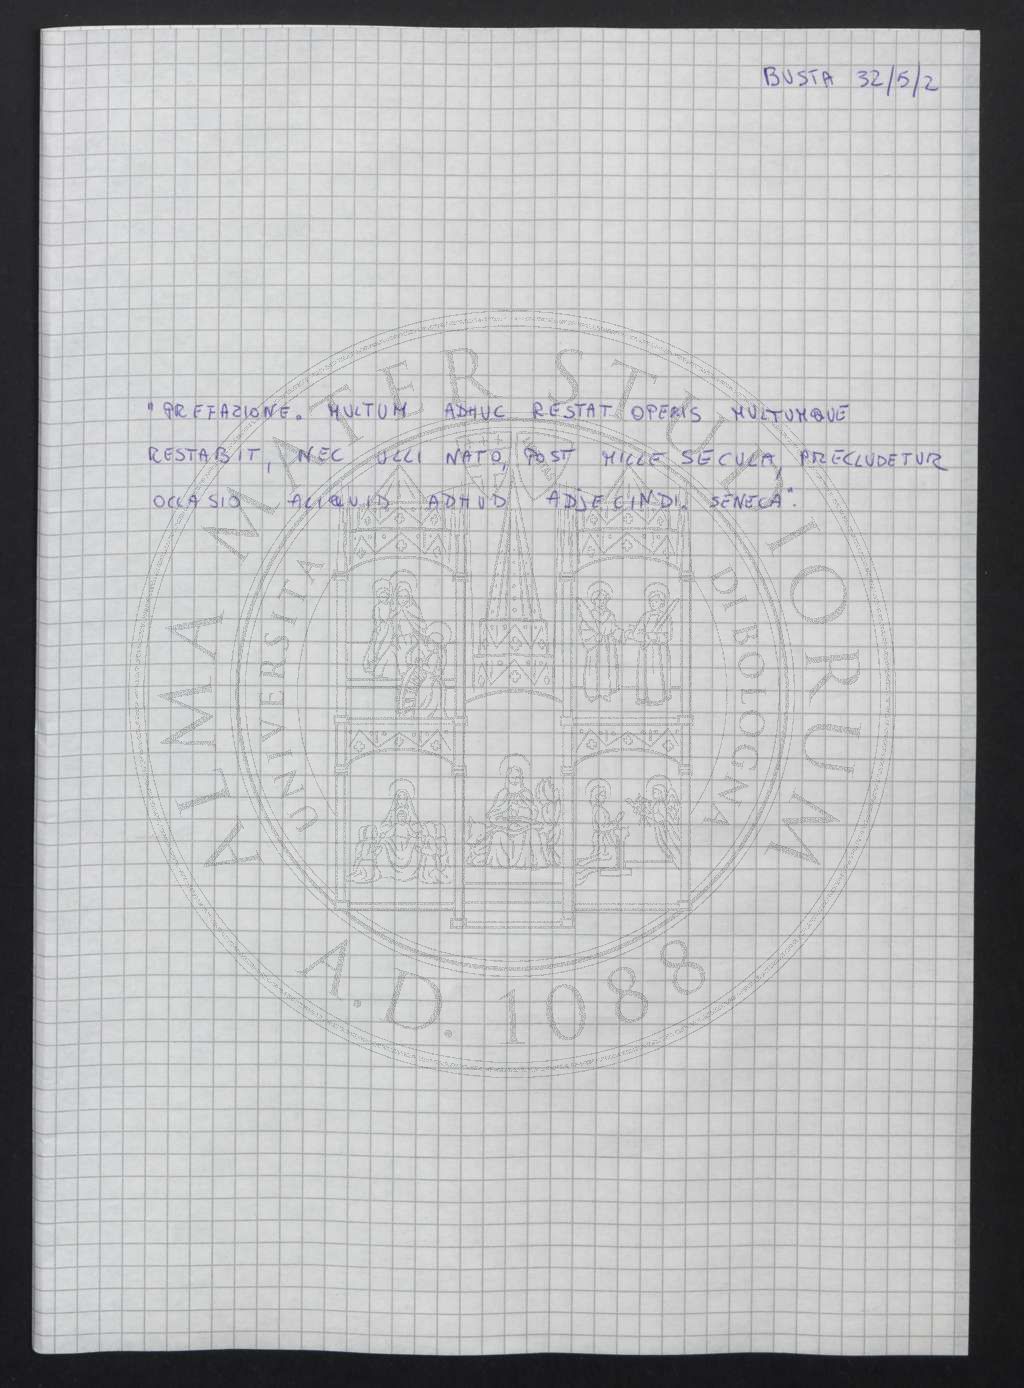 BUSTA 32/5/2
"PREFAZIONE. MULTUM ADHUC RESTAT OPERIS MULTUMQUE
RESTABIT, NEC ULLI NATO, POST MILLE SECULA, PRECLUDETUR
OCCASIO ALIQUID ADHUD ADJECINDI. SENECA".
ALMA MATER STUDIORUM
UNIVERSITA DI BOLOGNA
A.D. 1088